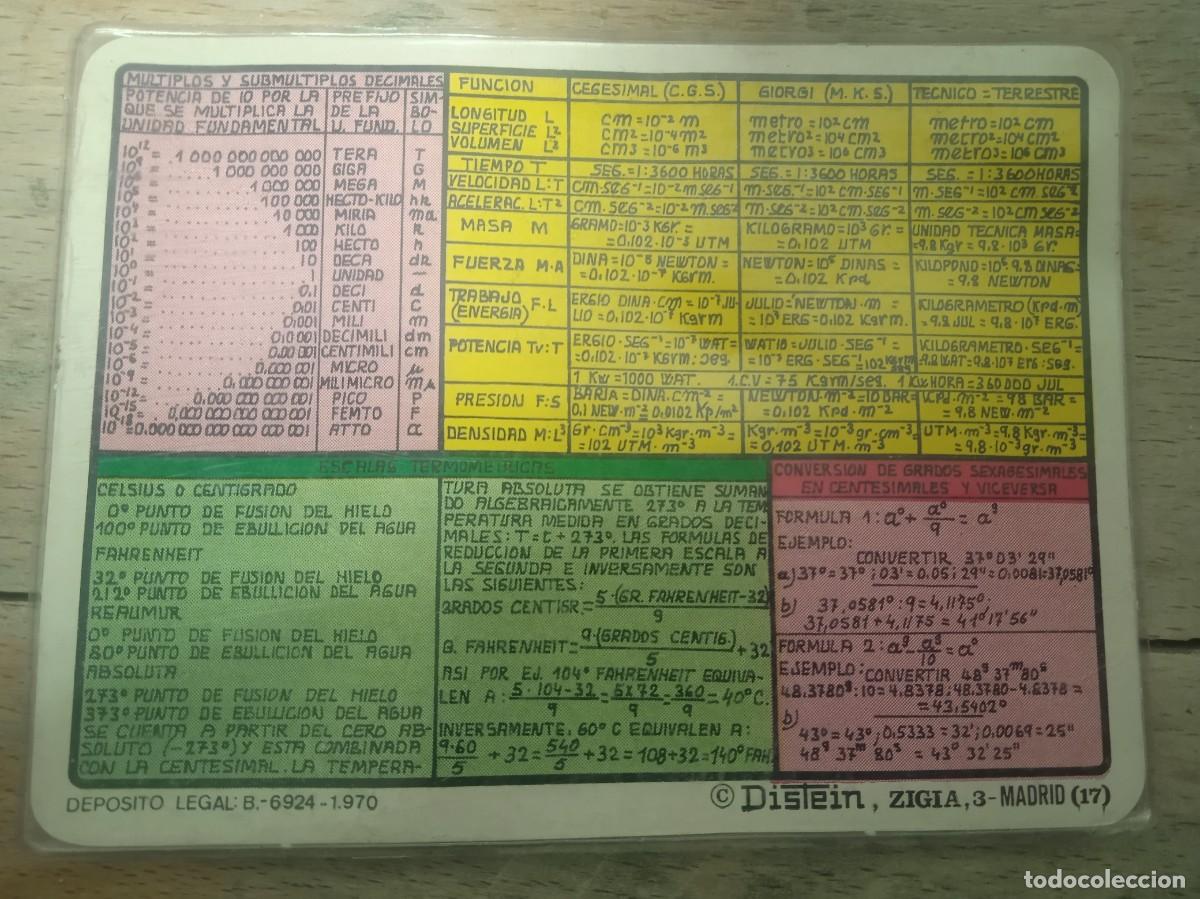 MULTIPLOS Y SUBMULTIPLOS DECIMALES
POTENCIA DE 10 POR LA QUE SE MULTIPLICA LA UNIDAD FUNDAMENTAL | PREFIJO DE LA U. FUND. | SIMBOLO
10¹² = 1 000 000 000 000 TERA T
10⁹ = 1 000 000 000 GIGA G
10⁶ = 1 000 000 MEGA M
100 000 HECTO-KILO hk
10 000 MIRIA ma
1 000 KILO k
100 HECTO h
10 DECA dk
1 UNIDAD —
0,1 DECI d
0,01 CENTI C
0,001 MILI m
0,0001 DECIMILI dm
0,00 001 CENTIMILI cm
0,000 001 MICRO µ
0,000 000 001 MILIMICRO mµ
10⁻¹² = 0,000 000 000 001 PICO P
10⁻¹⁵ = 0,000 000 000 000 001 FEMTO F
10⁻¹⁸ = 0,000 000 000 000 000 001 ATTO a
FUNCION | CEGESIMAL (C.G.S.) | GIORGI (M.K.S.) | TECNICO = TERRESTRE
LONGITUD L | cm = 10⁻² m | metro = 10² cm | metro = 10² cm
SUPERFICIE L² | cm² = 10⁻⁴ m² | metro² = 10⁴ cm² | metro² = 10⁴ cm²
VOLUMEN L³ | cm³ = 10⁻⁶ m³ | metro³ = 10⁶ cm³ | metro³ = 10⁶ cm³
TIEMPO T | SEG. = 1:3600 HORAS | SEG. = 1:3600 HORAS | SEG. = 1:3600 HORAS
VELOCIDAD L:T | cm·SEG⁻¹ = 10⁻² m SEG⁻¹ | m·SEG⁻¹ = 10² cm·SEG⁻¹ | m·SEG⁻¹ = 10² cm SEG⁻²
ACELERAC. L:T² | cm·SEG⁻² = 10⁻² m·SEG⁻² | m·SEG⁻² = 10² cm·SEG⁻² | m·SEG⁻² = 10² cm·SEG⁻²
MASA M | GRAMO = 10⁻³ KGr. = 0,102·10⁻³ UTM | KILOGRAMO = 10³ Gr. = 0,102 UTM | UNIDAD TECNICA MASA = 9.8 Kgr = 9.8·10³ Gr.
FUERZA M·A | DINA = 10⁻⁵ NEWTON = 0,102·10⁻⁷ KGrm. | NEWTON = 10⁵ DINAS = 0,102 Kpd | KILOPOND = 10⁵·9.8 DINAS = 9.8 NEWTON
TRABAJO (ENERGIA) F·L | ERGIO DINA·Cm = 10⁻⁷ JULIO = 0,102·10⁻⁷ KGrm | JULIO = NEWTON·m = 10⁷ ERG = 0,102 KGrm. | KILOGRAMETRO (Kpd·m) = 9.8 JUL = 9.8·10⁷ ERG.
POTENCIA Tv:T | ERGIO·SEG⁻¹ = 10⁻⁷ WAT = 0,102·10⁻⁷ KGrm:SEG | WATIO = JULIO·SEG⁻¹ = 10⁻⁷ ERG·SEG⁻¹ = 102 KGrm/SEG | KILOGRAMETRO·SEG⁻¹ = 9.8 WAT = 9.8·107 ERG:SEG.
1 KW = 1000 WAT. 1.C.V = 75 KGrm/SEG. 1 KW HORA = 360000 JUL
PRESION F:S | BARIA = DINA·cm⁻² = 0,1 NEW·m⁻² = 0,0102 Kp/m² | NEWTON·m⁻² = 10 BAR = 0,102 Kpd·m⁻² | Kpd·m⁻² = 98 BAR = 9.8 NEW·m⁻²
DENSIDAD M:L³ | Gr·cm⁻³ = 10³ Kgr·m⁻³ = 102 UTM·m⁻³ | Kgr·m⁻³ = 10⁻³ gr·cm⁻³ = 0,102 UTM·m⁻³ | UTM·m⁻³ = 9.8 Kgr·m⁻³ = 9.8·10⁻³ gr·m⁻³
ESCALAS TERMOMETRICAS
CELSIUS O CENTIGRADO
0º PUNTO DE FUSION DEL HIELO
100º PUNTO DE EBULLICION DEL AGUA
FAHRENHEIT
32º PUNTO DE FUSION DEL HIELO
212º PUNTO DE EBULLICION DEL AGUA
REAUMUR
0º PUNTO DE FUSION DEL HIELO
80º PUNTO DE EBULLICION DEL AGUA
ABSOLUTA
273º PUNTO DE FUSION DEL HIELO
373º PUNTO DE EBULLICION DEL AGUA
SE CUENTA A PARTIR DEL CERO AB-
SOLUTO (-273º) Y ESTA COMBINADA
CON LA CENTESIMAL. LA TEMPERA-
TURA ABSOLUTA SE OBTIENE SUMAN
DO ALGEBRAICAMENTE 273º A LA TEM
PERATURA MEDIDA EN GRADOS DECI-
MALES: T=C+273º. LAS FORMULAS DE
REDUCCION DE LA PRIMERA ESCALA A
LA SEGUNDA E INVERSAMENTE SON
LAS SIGUIENTES:
GRADOS CENTIGR = 5·(GR. FAHRENHEIT-32)/9
G. FAHRENHEIT = 9·(GRADOS CENTIG.)/5 + 32
ASI POR EJ. 104º FAHRENHEIT EQUIVA-
LEN A: 5·104-32/9 = 5x72/9 = 360/9 = 40ºC.
INVERSAMENTE, 60º C EQUIVALEN A:
9·60/5 + 32 = 540/5 + 32 = 108+32 = 140º FAH
CONVERSION DE GRADOS SEXAGESIMALES
EN CENTESIMALES Y VICEVERSA
FORMULA 1: aº + aº/9 = aᵍ
EJEMPLO:
CONVERTIR 37º 03' 29"
a) 37º = 37º; 03' = 0.05; 29" = 0,0081 = 37,0581º
b) 37,0581º : 9 = 4,1175º:
37,0581 + 4,1175 = 41º 17' 56"
FORMULA 2: aᵍ - aᵍ/10 = aº
EJEMPLO: CONVERTIR 48ᵍ 37ᵐ 80ˢ
48.3780ᵍ : 10 = 4.8378; 48.3780 - 4.8378 =
= 43,5402º
b)
43º = 43º; 0,5333 = 32'; 0,0069 = 25"
48ᵍ 37ᵐ 80ˢ = 43º 32' 25"
DEPOSITO LEGAL: B.-6924-1.970
© Distein, ZIGIA, 3-MADRID (17)
todocoleccion